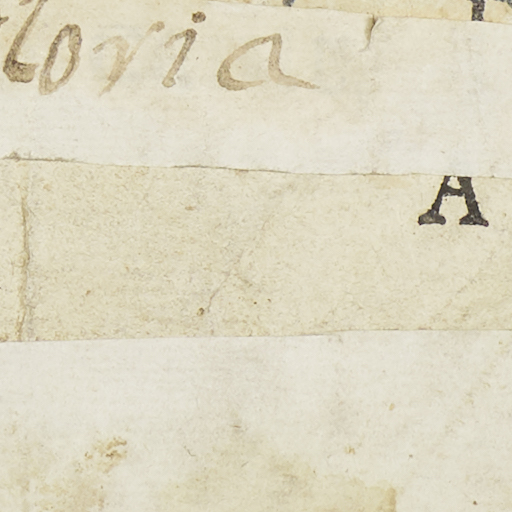 loria
A